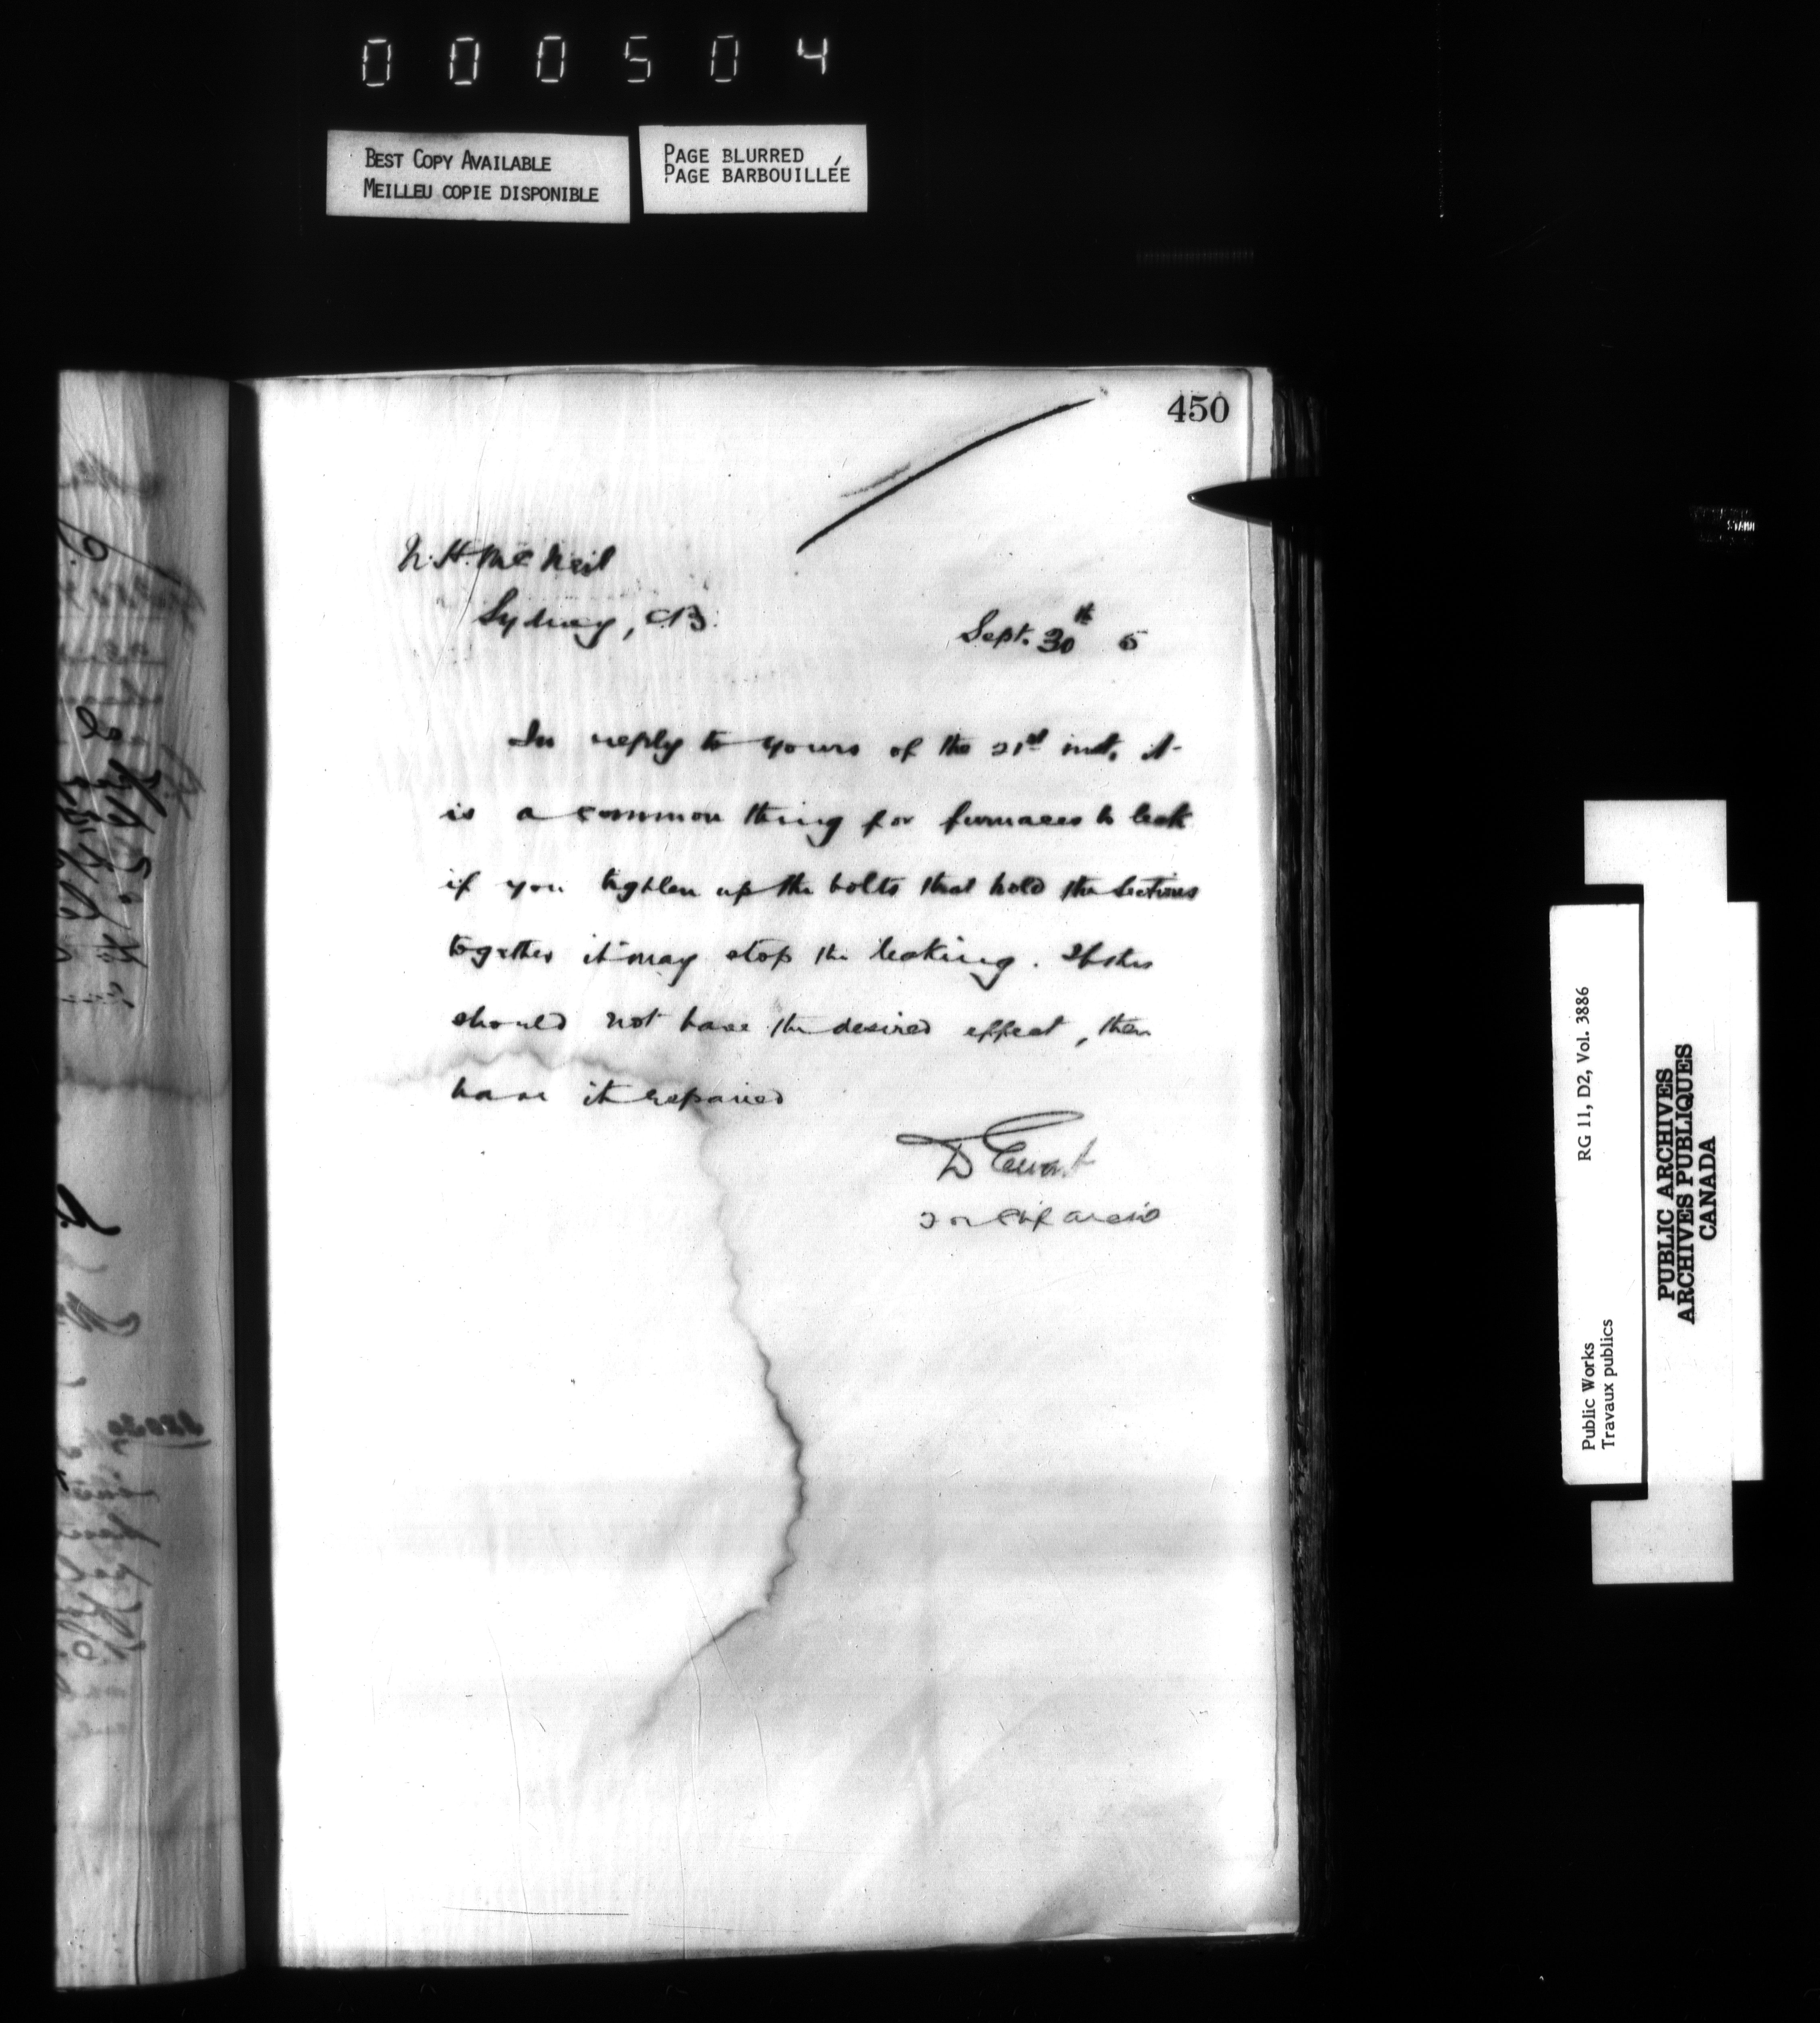 000504
BEST COPY AVAILABLE
MEILLEU COPIE DISPONIBLE
PAGE BLURRED
PAGE BARBOUILLÉE
450
N. H. McNeil
Sydney, C.B.
Sept. 30th 5
In reply to yours of the 21st inst. it
is a common thing for furnaces to leak
if you tighten up the bolts that hold the sections
together it may stop the leaking. If this
should not have the desired effect, then
have it repaired
D Ewart
Public Works
Travaux publics
RG 11, D2, Vol. 3886
PUBLIC ARCHIVES
ARCHIVES PUBLIQUES
CANADA